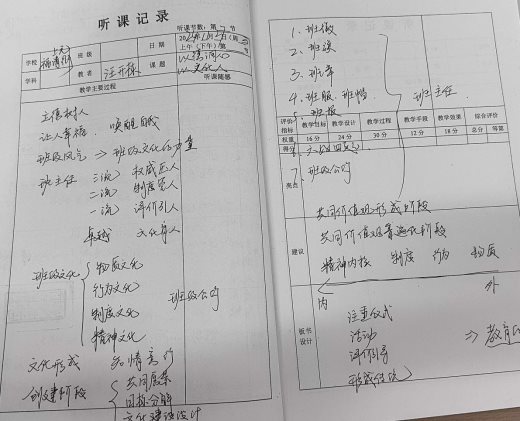 听课记录
听课节数：第 节
学校
班级
日期
上午（下午）第 节
学科
教者 汪开栋
课题 以德润人
以文化人
教学主要过程
听课随感
主德树人
让人幸福 唤醒自我
班级风气 => 班级文化的力量
班主任 三流 权威压人
二流 制度管人
一流 评价引人
卓越 文化育人
班级文化 物质文化
行为文化
制度文化
精神文化
班级公约
文化形成 知情意行
创建阶段 共同愿景
目标分解
文化建设设计
1. 班徽
2. 班旗
3. 班章
4. 班服、班帽
班主任
班报
评价指标 教学目标 教学设计 教学过程 教学手段 教学效果 综合评价
权重 16分 24分 30分 12分 18分 总分 等第
得分
亮点
7. 班级公约
共同价值观形成阶段
建议
共同价值观普遍化阶段
精神内核 制度 行为 物质
内 外
板书设计
注重仪式
活动
评价引导
=> 教育